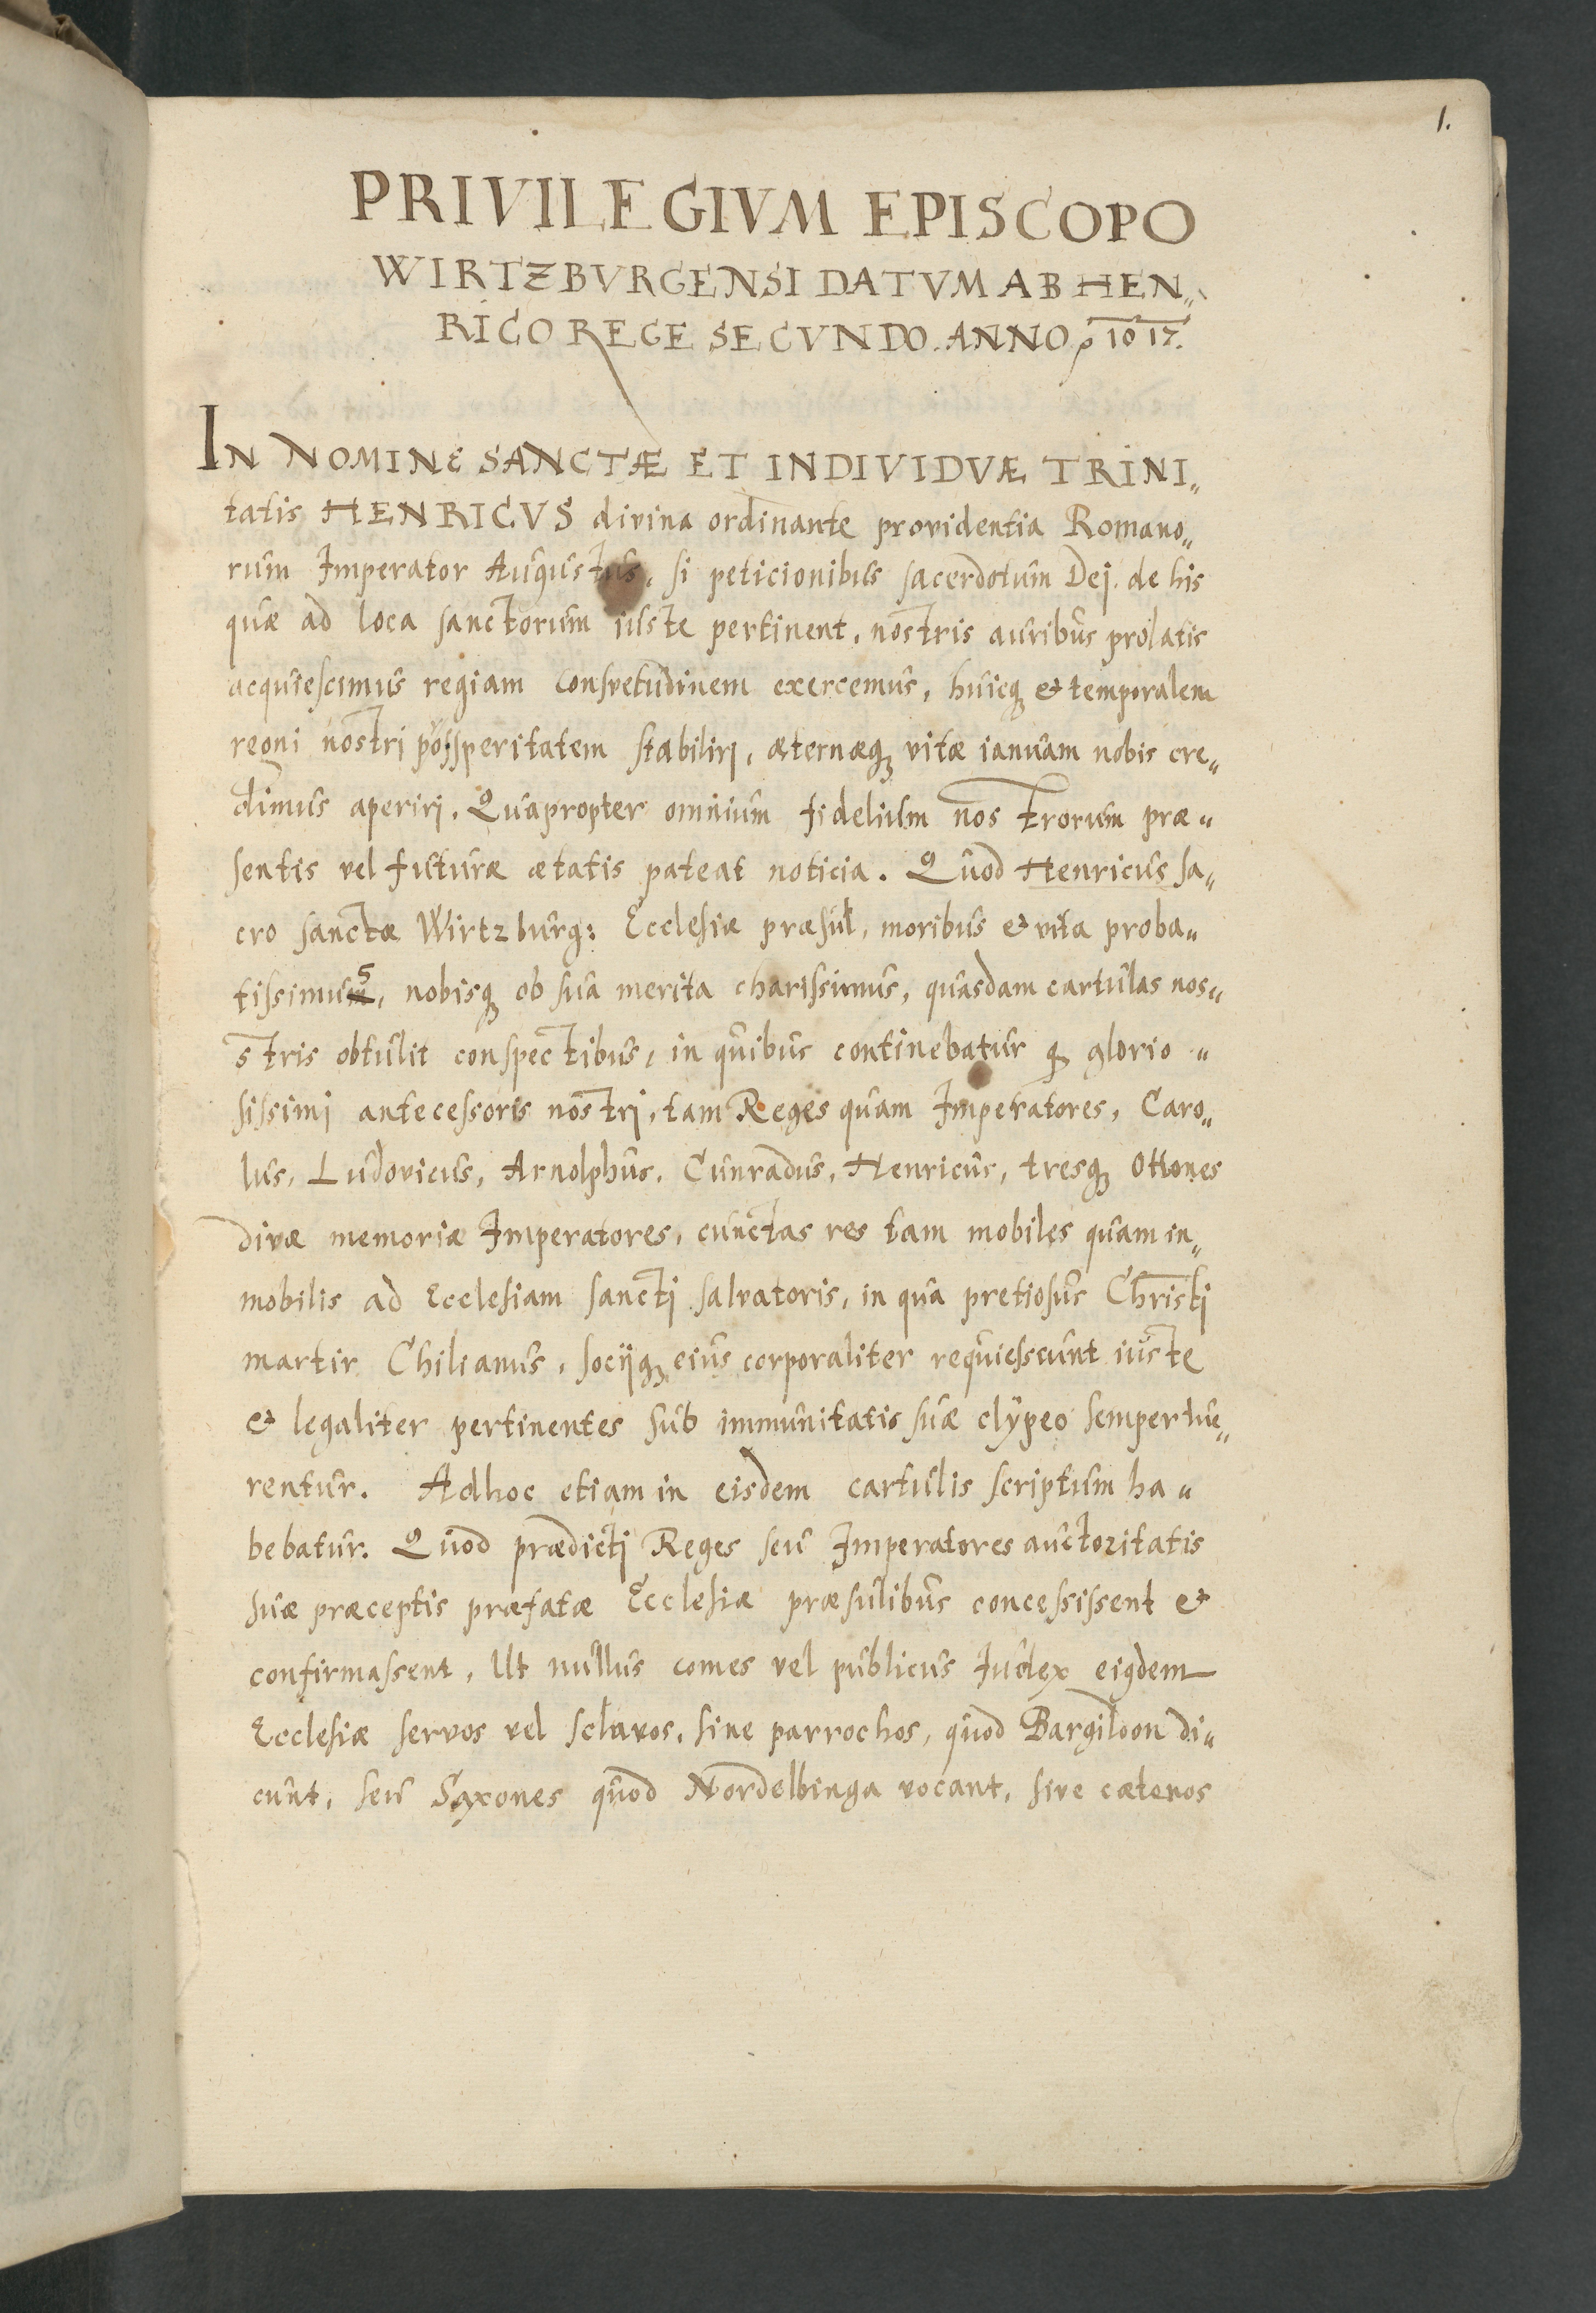 1.
PRIVILEGIVM EPISCOPO
WIRTZBVRGENSI DATVM AB HEN„
RICO REGE SECVNDO. ANNO 1017.
IN NOMINE SANCTÆ ET INDIVIDVÆ TRINI„
tatis HENRICVS divina ordinante providentia Romano„
rum Imperator Augustus, si peticionibus sacerdotum Dej. de his
quæ ad loca sanctorum iuste pertinent, nostris auribus prolatis
acquiescimus regiam consvetudinem exercemus, huicq; et temporalem
regni nostri possperitatem stabilirj, æternæq; vitæ ianuam nobis cre„
dimus aperirj. Quapropter omnium fidelium nostrorum præ„
sentis vel futuræ ætatis pateat noticia. Quod Henricus sa„
cro sanctæ Wirtzburg: Ecclesiæ præsul, moribus et vita proba„
tissimus, nobisq; ob sua merita charissimus, quasdam cartulas nos„
stris obtulit conspectibus, in quibus continebatur q; glorio„
sissimj antecessoris nostrj, tam Reges quam Imperatores, Caro„
lus, Ludovicus, Arnolphus, Cunradus, Henricus, tresq; Ottones
divæ memoriæ Imperatores, cunctas res tam mobiles quam in„
mobilis ad Ecclesiam sanctj salvatoris, in qua pretiosus Christj
martir Chilianus, socijq; eius corporaliter requiesscunt iuste
et legaliter pertinentes sub immunitatis suæ clypeo semper tue„
rentur. Adhoc etiam in eisdem cartulis scriptum ha„
bebatur. Quod prædictj Reges seu Imperatores auctoritatis
suæ præceptis præfatæ Ecclesiæ præsulibus concessissent et
confirmassent, Ut nullus comes vel publicus Iudex eiqdem
Ecclesiæ servos vel sclavos, sine parrochos, quod Bargildon di„
cunt, seu Saxones quod Nordelbinga vocant, sive cæteros